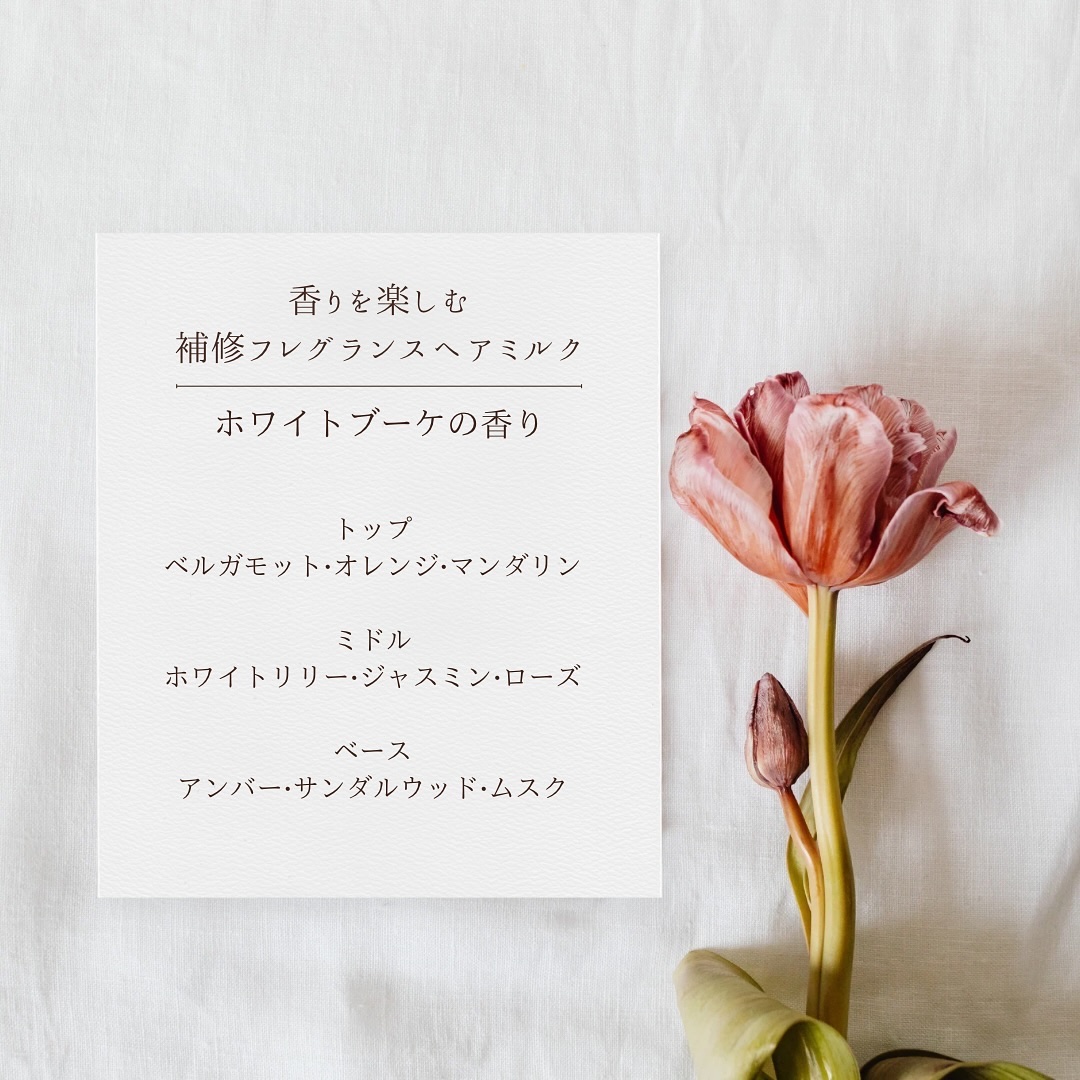 香りを楽しむ
補修フレグランスヘアミルク
ホワイトブーケの香り
トップ
ベルガモット・オレンジ・マンダリン
ミドル
ホワイトリリー・ジャスミン・ローズ
ベース
アンバー・サンダルウッド・ムスク